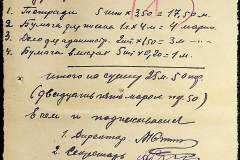 1. Тетради 5 шт × 350 = 17,50 м.
2. Бумага для 1 × 4 м = 4 марки
3. Дело для 2 шт × 150 = 3 м
4. Бумага 5 шт × 0,20 = 1 м.
итого на сумму 25 м. 50 пф.
(двадцать пять марок пф. 50)
в чем и подписываемся
1. Директор
2. Секретарь